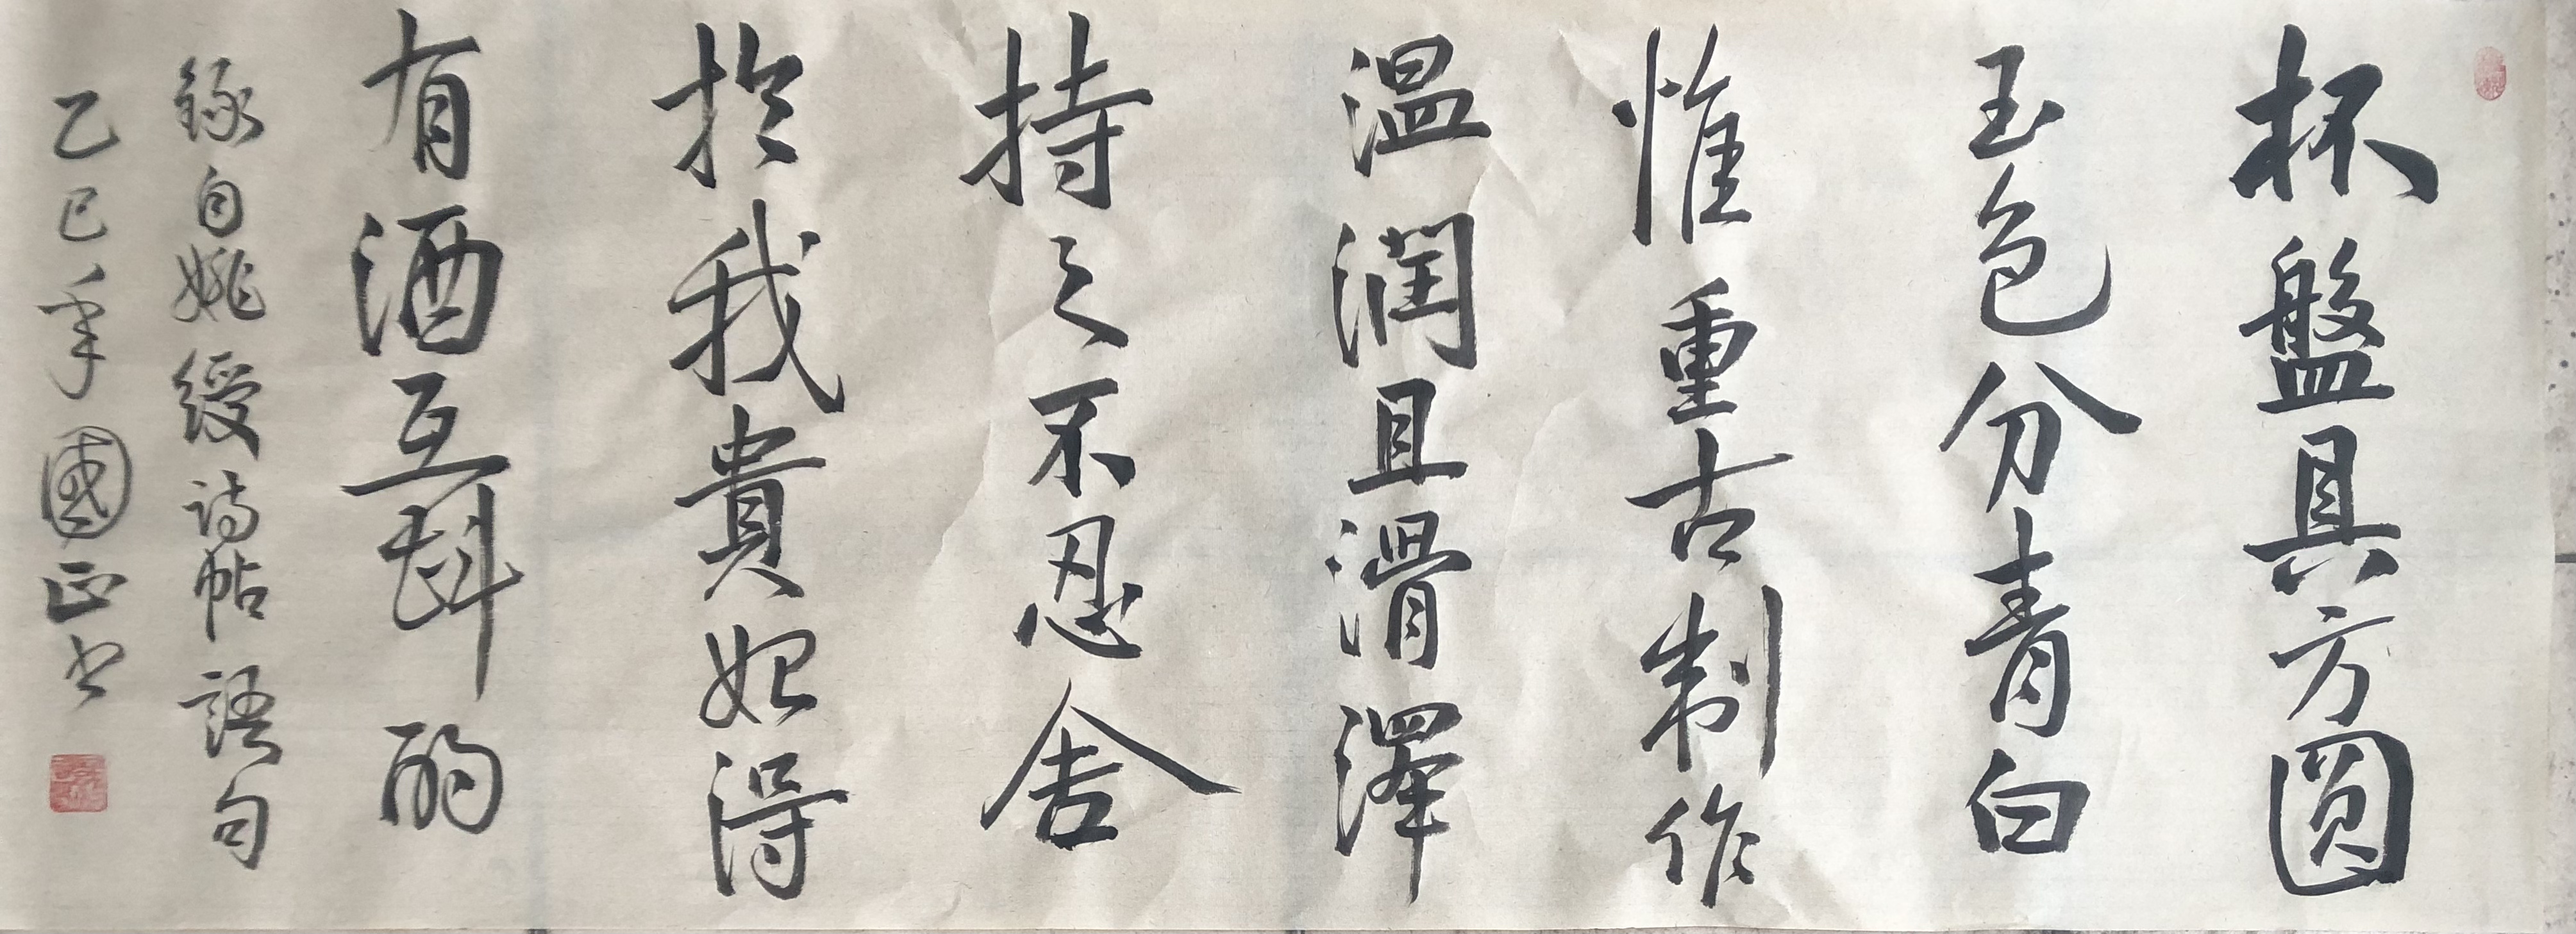 杯盤具方圓
玉色分青白
惟重古制作
溫潤且滑澤
持之不忍舍
於我貴如得
有酒互斟酌
錄自姚綬詩帖語句
乙巳年國正書